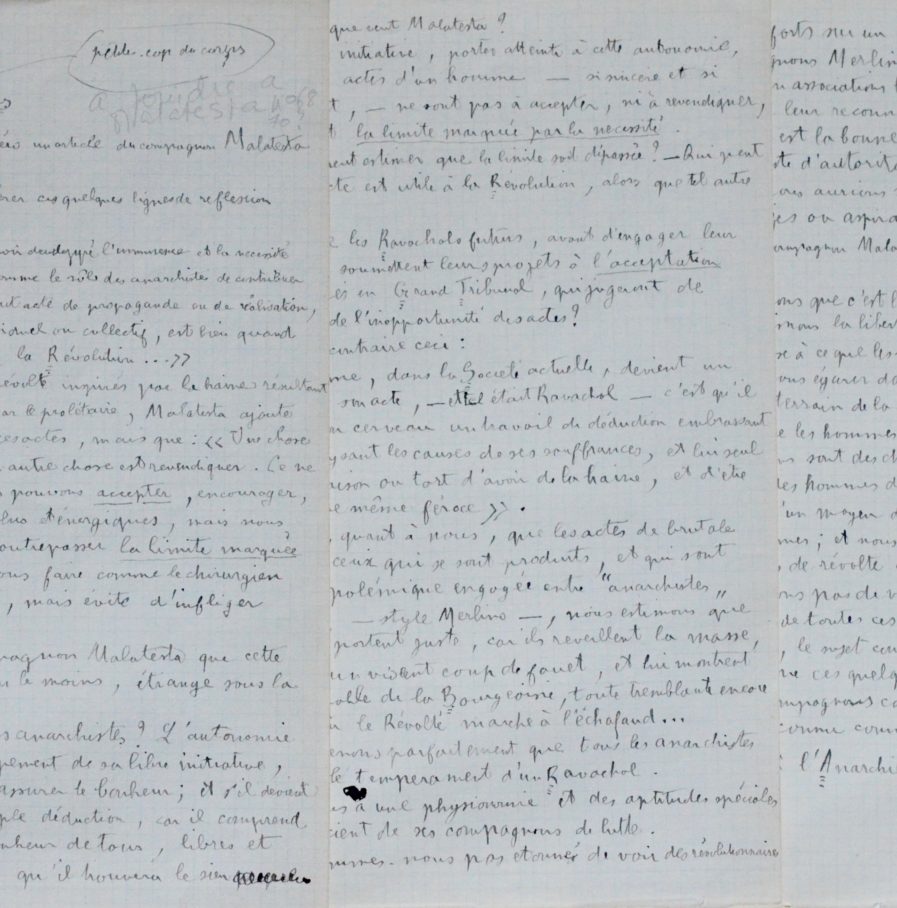 petite cap du corps
a joindre a
Malatesta nº 68
un article du compagnon Malatesta
ces quelques lignes de reflexion
developpé l'imminence et la necessité
comme le rôle des anarchistes de contribuer
acte de propagande ou de réalisation,
ou collectif, est bien quand
la Révolution ... »
inspirés par la haine résultant
le prolétaire, Malatesta ajoute
ces actes, mais que : « Une chose
autre chose est revendiquer. Ce ne
pouvons accepter, encourager,
plus et énergiques, mais nous
outrepasser la limite marquée
faire comme le chirurgien
, mais évite d'infliger
Malatesta que cette
le moins, étrange sous la
anarchistes ? L'autonomie
de sa libre initiative,
assurer le bonheur ; et s'il devient
déduction, car il comprend
de tous, libres et
qu'il trouvera le sien
que cent Malatesta ?
initiative, porter atteinte à cette autonomie,
actes d'un homme — si sincère et si
, — ne sont pas à accepter, ni à revendiquer,
la limite marquée par la necessité.
estimer que la limite soit dépassée ? — Qui peut
est utile à la Révolution, alors que tel autre
les Ravachols futurs, avant d'engager leur
soumettent leurs projets à l'acceptation
en Grand Tribunal, qui jugeront de
de l'inopportunité des actes ?
contraire ceci :
, dans la Société actuelle, devient un
son acte, — était Ravachol — c'est qu'il
cerveau un travail de déduction embrassant
les causes de ses souffrances, et lui seul
ou tort d'avoir de la haine, et d'être
même féroce ».
quant à nous, que les actes de brutale
ceux qui se sont produits, et qui sont
polémique engagée entre "anarchistes"
— style Merlino —, nous estimons que
portent juste, car ils reveillent la masse,
un violent coup de fouet, et lui montrent
de la Bourgeoisie, toute tremblante encore
le Révolté marche à l'échafaud ...
parfaitement que tous les anarchistes
temperament d'un Ravachol.
a une physionomie et des aptitudes spéciales
de ses compagnons de lutte.
nous pas etonnés de voir des révolutionnaires
forts sur un
Merlin
associations
leur reconn
est la bonne
d'autorité
aurions
ou aspira
compagnon Mala
que c'est l
la liber
à ce que les
égarer da
terrain de la
les hommes
sont des ch
hommes d
un moyen d
; et nous
de révolte
pas de
de toutes ces
, le sujet
ces quelq
compagnons
comme
l'Anarchi